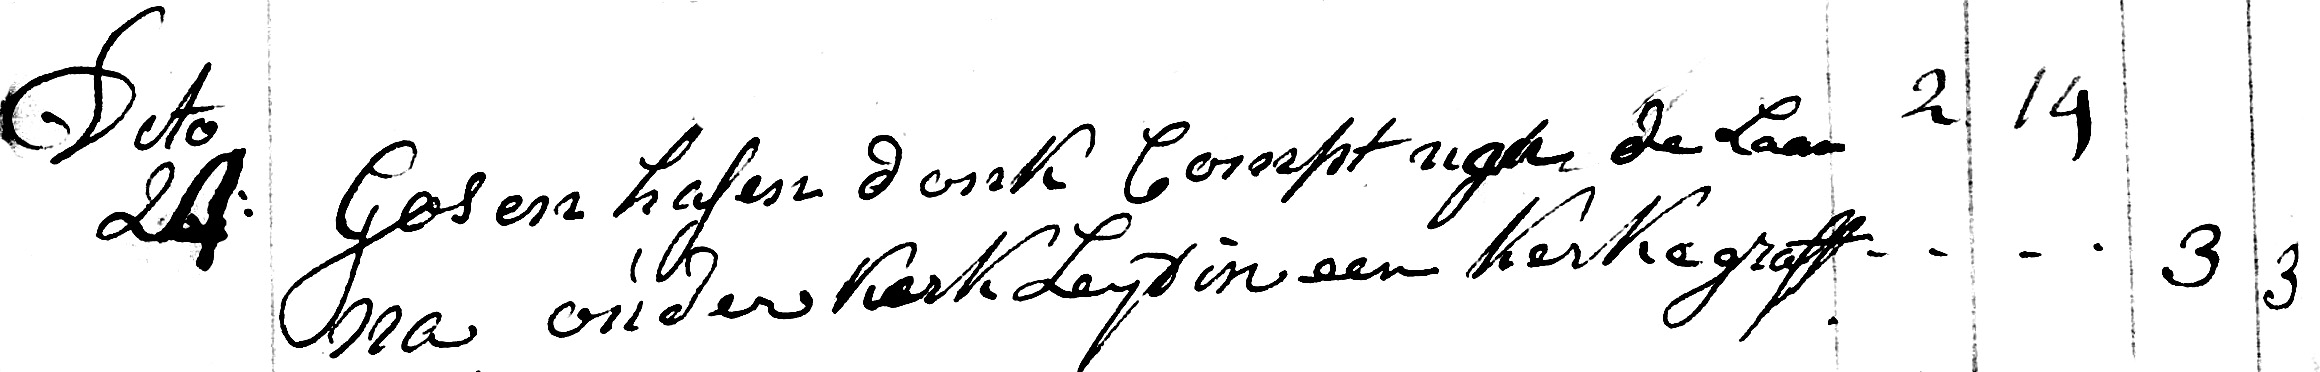 Dito
24: Gosen hasen donk Compt uyt de Laan 2 14
na ouderkerk Leyt in een kerke graff - - - - 3 3